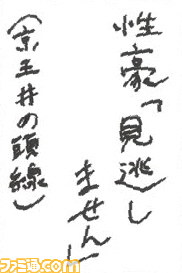 性豪「見逃し
ません」
（京王井の頭線）
ファミ通.com